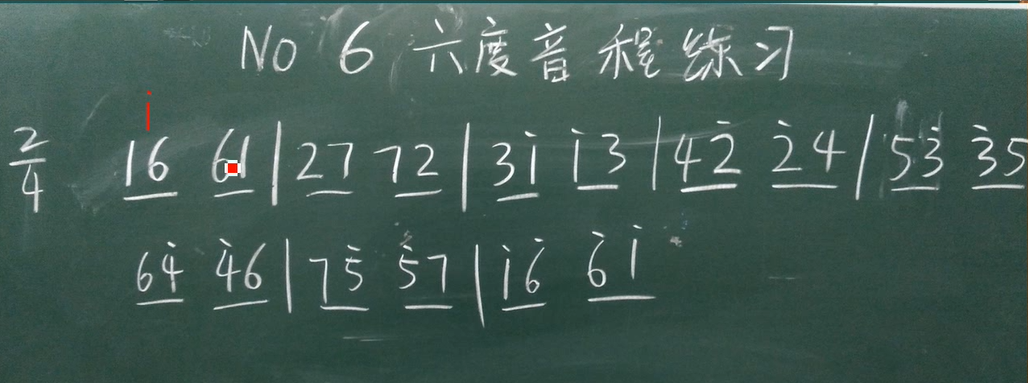 No 6 六度音程练习
i
2/4 16 61 | 27 72 | 3i i3 | 42̇ 2̇4 | 53̇ 3̇5
64̇ 4̇6 | 75̇ 5̇7 | i6̇ 6̇i